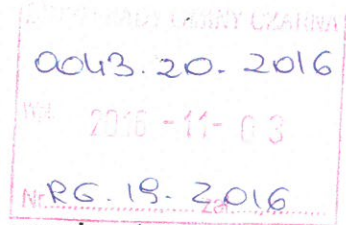 GMINY CZARNA
0043.20.2016
2016 -11- 03
Nr RG.19.2016 zał.